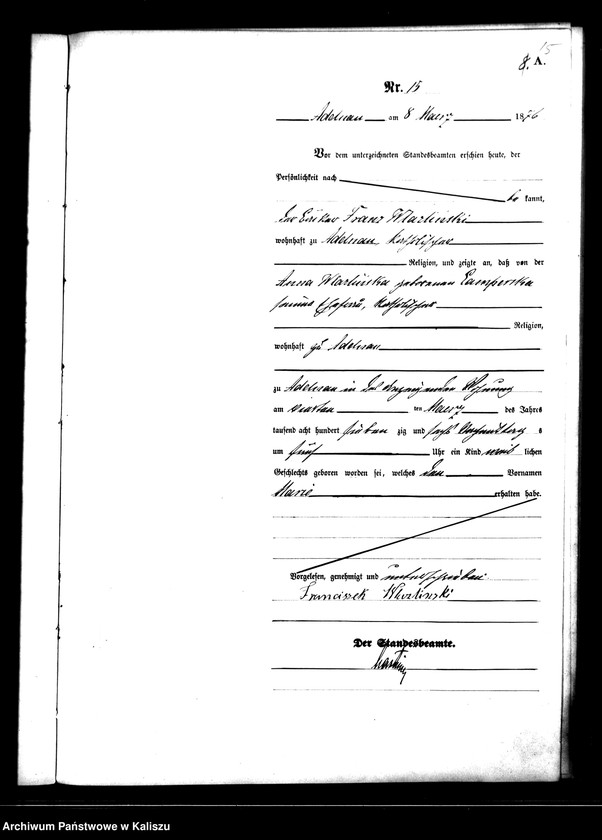 15
8. A.
Nr. 15
Adelnau am 8 Maerz 1876
Vor dem unterzeichneten Standesbeamten erschien heute, der
Persönlichkeit nach
be kannt,
der Franz Wlazlinski
wohnhaft zu Adelnau, katholischer
Religion, und zeigte an, daß von der
Anna Wlazlinska geborenen
seiner Ehefrau, katholischer
Religion,
wohnhaft zu Adelnau
zu Adelnau in der Wohnung
am vierten ten Maerz des Jahres
tausend acht hundert sieben zig und sechs Nachmittags
um fünf Uhr ein Kind weib lichen
Geschlechts geboren worden sei, welches den Vornamen
Marie erhalten habe.
Vorgelesen, genehmigt und unterschrieben
Franciszek Wlazlinski
Der Standesbeamte.
Archiwum Państwowe w Kaliszu